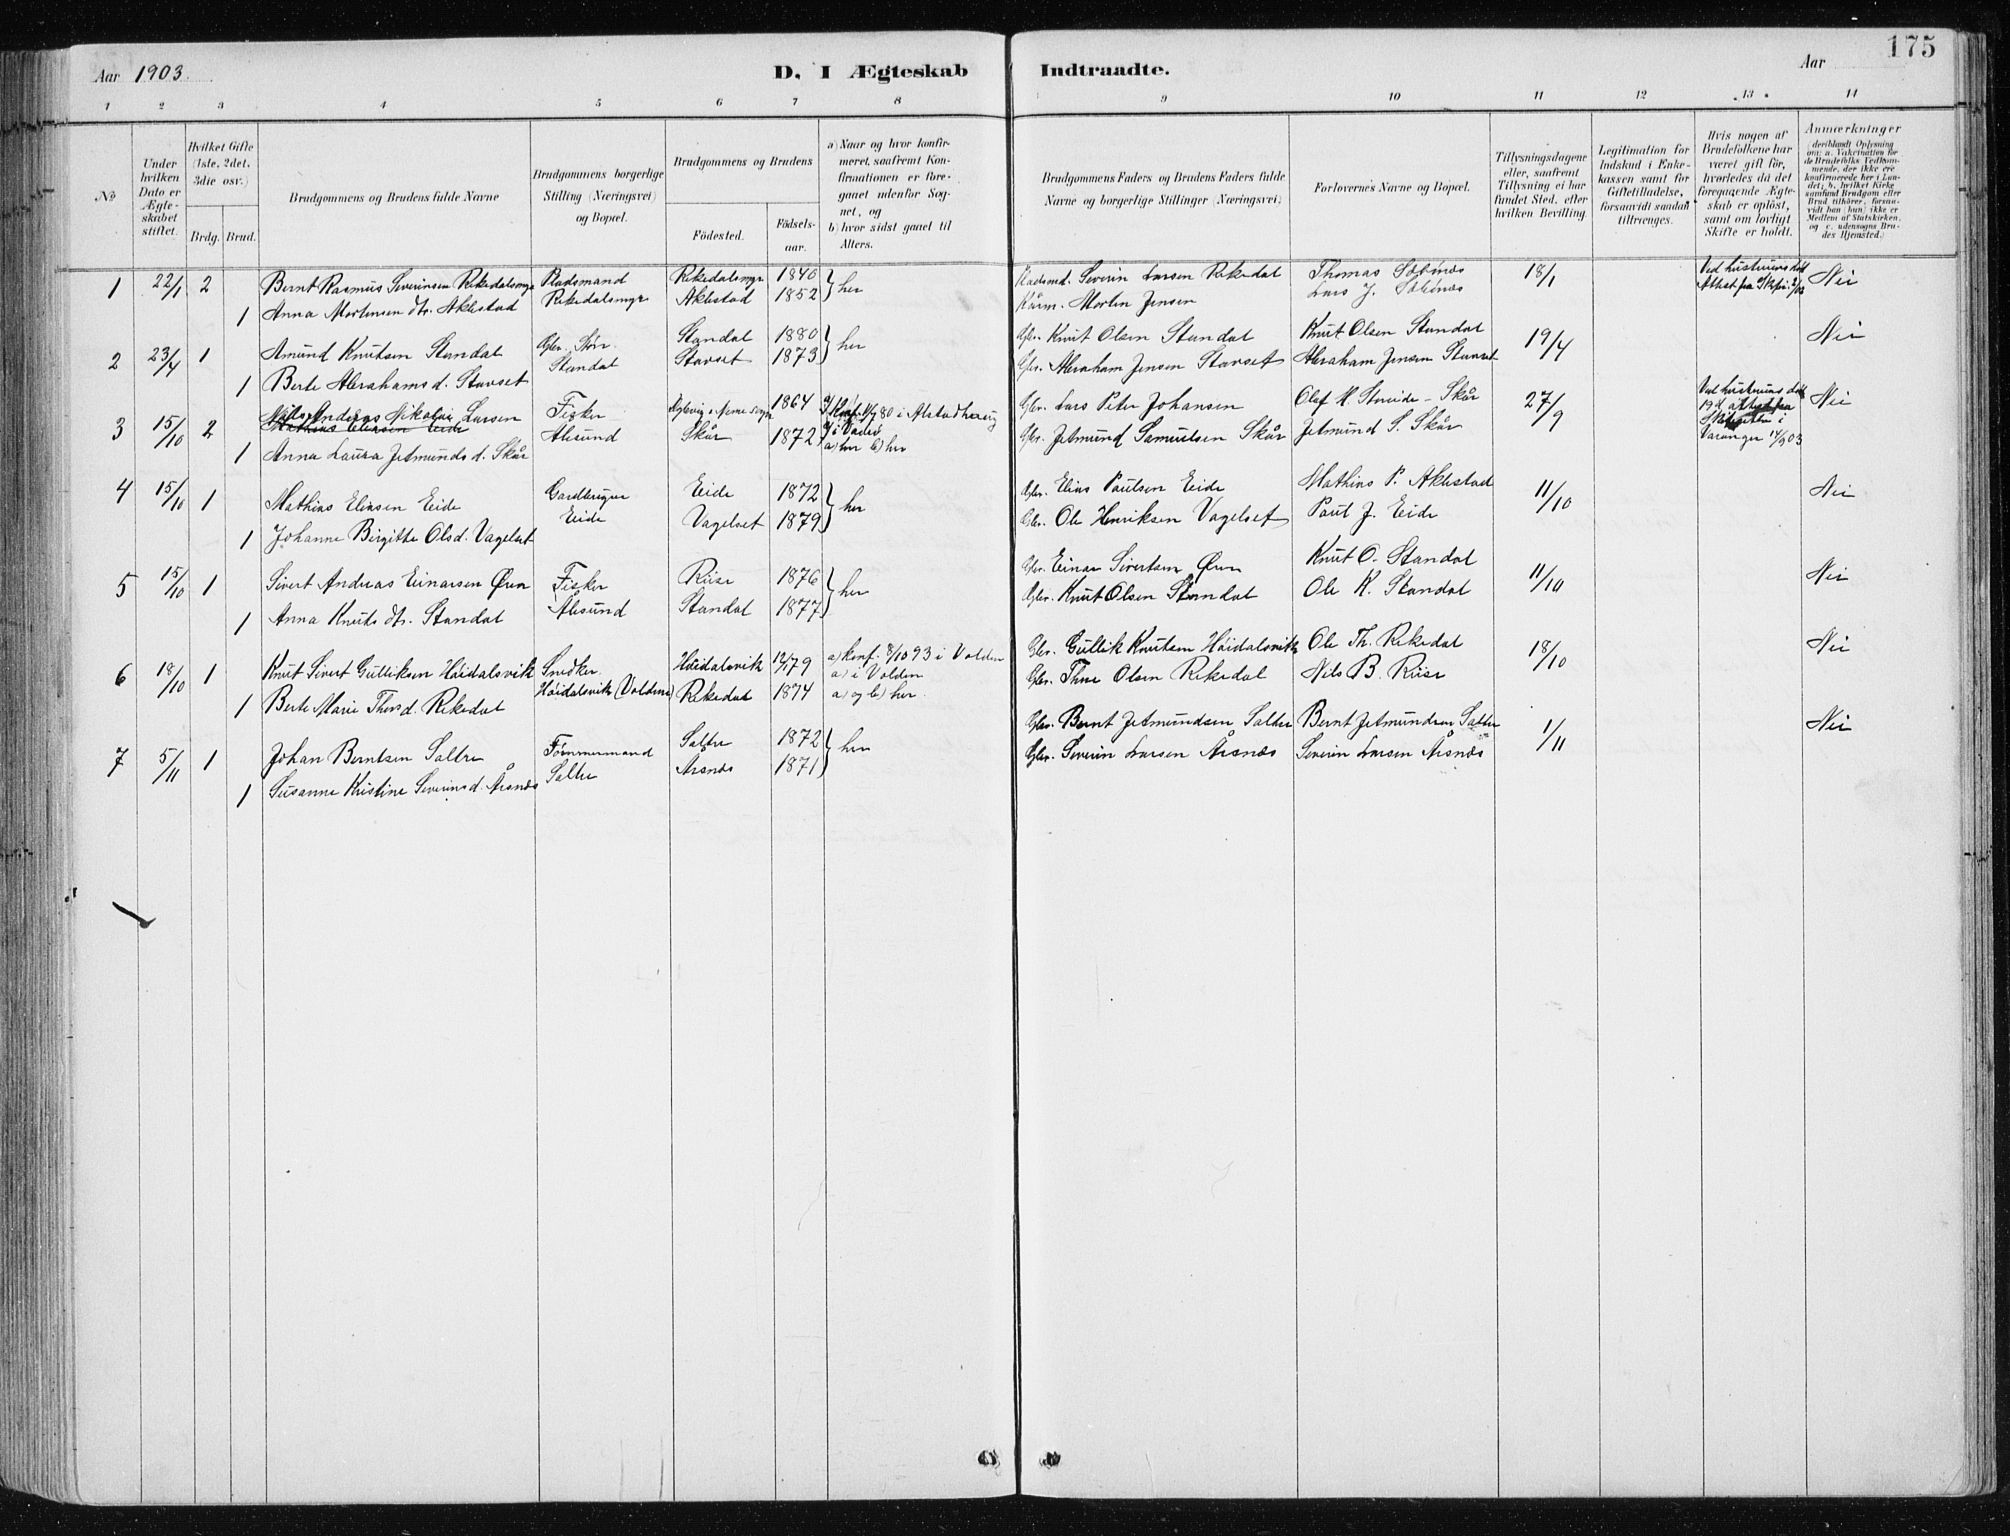 175
Aar 1903. D. I Ægteskab Indtraadte. Aar
1 2 3 4 5 6 7 8 9 10 11 12 13 14
No
Under hvilken Dato er Ægteskabet stiftet.
Hvilket Gifte (1ste, 2det, 3die osv.)
Brdg. Brud.
Brudgommens og Brudens fulde Navne
Brudgommens borgerlige Stilling (Næringsvei) og Bopæl.
Brudgommens og Brudens
Fødested. Fødselsaar.
a) Naar og hvor konfirmeret, saafremt Konfirmationen er foregaaet udenfor Sognet, og
b) hvor sidst gaaet til Alters.
Brudgommens Faders og Brudens Faders fulde Navne og borgerlige Stillinger (Næringsvei)
Forlovernes Navne og Bopæl.
Tillysningsdagene eller, saafremt Tillysning ei har fundet Sted, efter hvilken Bevilling.
Legitimation for Indskud i Enkekassen samt for Giftetilladelse, forsaavidt saadan tiltrænges.
Hvis nogen af Brudefolkene har været gift før, hvorledes da det foregaaende Ægteskab er opløst, samt om lovligt Skifte er holdt.
Anmærkninger (deriblandt Oplysning om: a. Vakcination for de Brudefolks Vedkommende, der ikke ere konfirmerede her i Landet; b. hvilket Kirkesamfund Brudgom eller Brud tilhører, forsaavidt han (hun) ikke er Medlem af Statskirken, og c. udensogns Brudes Hjemsted.)
1 22/1 2 Bernt Rasmus Severinsen Rekedalsmyr Pladsmand Rekedalsmyr 1840 her Pladsmd. Severin Larsen Rekedal Thomas Sæbönes 18/1 Ved hustruens död Nei
1 Anna Mortensen dtr. Aklestad Rekedalsmyr Aklestad 1852 Morten Jensen Lars J. Sæbönes Attest fra
2 23/4 1 Amund Knutsen Standal Gbr. Sön Standal 1880 her Gbr. Knut Olsen Standal Knut Olsen Standal 19/4 Nei
1 Berte Abrahamsd. Stavset Standal Stavset 1873 Gbr. Abraham Jensen Stavset Abraham Jensen Stavset
3 15/10 2 Nils Anders Nikolai Larsen Fisker 1864 i Alstadhaug Gbr. Lars Peter Johansen Olaf M. Skår 27/9 Ved hustruens död Nei
Mathias Eliasen Eide
1 Anna Laura Jetmundsd. Skår Alesund Skår 1872 a) her b) her Gbr. Jetmund Samuelsen Skår Jetmund S. Skår Varanger 14/9 03
4 15/10 1 Mathias Eliasen Eide Gardbruger Eide 1872 her Gbr. Elias Paulsen Eide Mathias P. Aklestad 11/10 Nei
1 Johanne Birgitte Olsd. Vagelset Eide Vagelset 1879 Gbr. Ole Henriksen Vagelset Paul J. Eide
5 15/10 1 Sivert Andreas Einarsen Ørsn Fisker Riise 1876 her Gbr. Einar Sivertsen Knut O. Standal 11/10 Nei
1 Anna Knuts dtr. Standal Ålesund Standal 1877 Gbr. Knut Olsen Standal Ole K. Standal
6 18/10 1 Knut Sivert Gulliksen Höidalsvik Snedker Höidalsvik 79 a) konf. 8/10 93 i Volden Gbr. Gullik Knutsen Höidalsvik Ole Th. Rekedal 18/10 Nei
a) i Volden
1 Berte Marie Thorsd. Rekedal Höidalsvik (Volden) Rekedal 1874 a) og b) her. Gbr. Thore Olsen Rekedal Nils B. Riise
7 5/11 1 Johan Berntsen Saltre Tömmermand Saltre 1872 her Gbr. Bernt Jetmundsen Saltre Bernt Jetmundsen Saltre 1/11 Nei
1 Susanne Kristine Severinsd. Årsnes Saltre Årsnes 1871 Gbr. Severin Larsen Årsnes Severin Larsen Årsnes